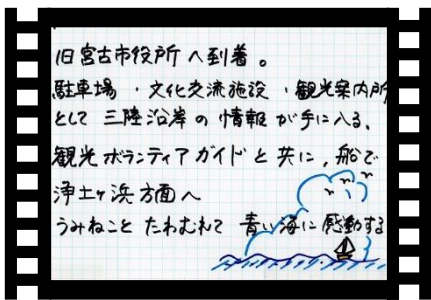 旧宮古市役所へ到着。
駐車場・文化交流施設・観光案内所
として三陸沿岸の情報が手に入る、
観光ボランティアガイドと共に、船で
浄土ヶ浜方面へ
うみねことたわむれて青い海に感動する